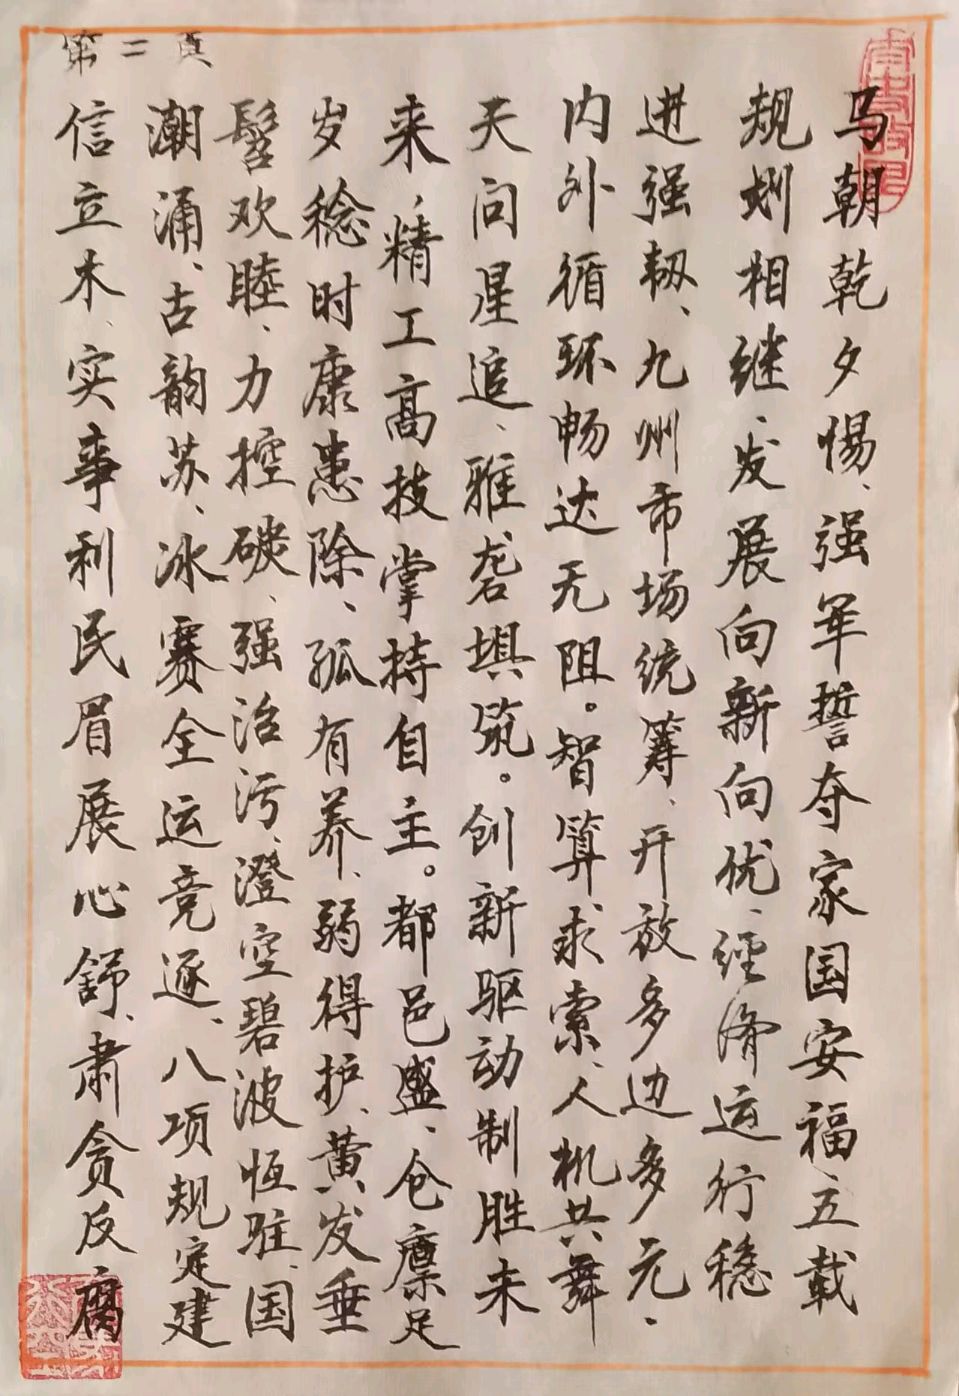 第二页
马朝乾夕惕、强军誓夺家国安福、五载
规划相继、发展向新向优、经济运行稳
进强韧、九州市场统筹、开放多边多元、
内外循环畅达无阻。智算求索、人机共舞
天问星追、雅砻埧筑。创新驱动制胜未
来，精工高技掌持自主。都邑盛、仓廪足
岁稔时康患除、孤有养、弱得护、黄发垂
髫欢睦、力控碳、强治污、澄空碧波恒驻、国
潮涌、古韵苏、冰赛全运竞逐、八项规定建
信立木、实事利民眉展心舒、肃贪反腐